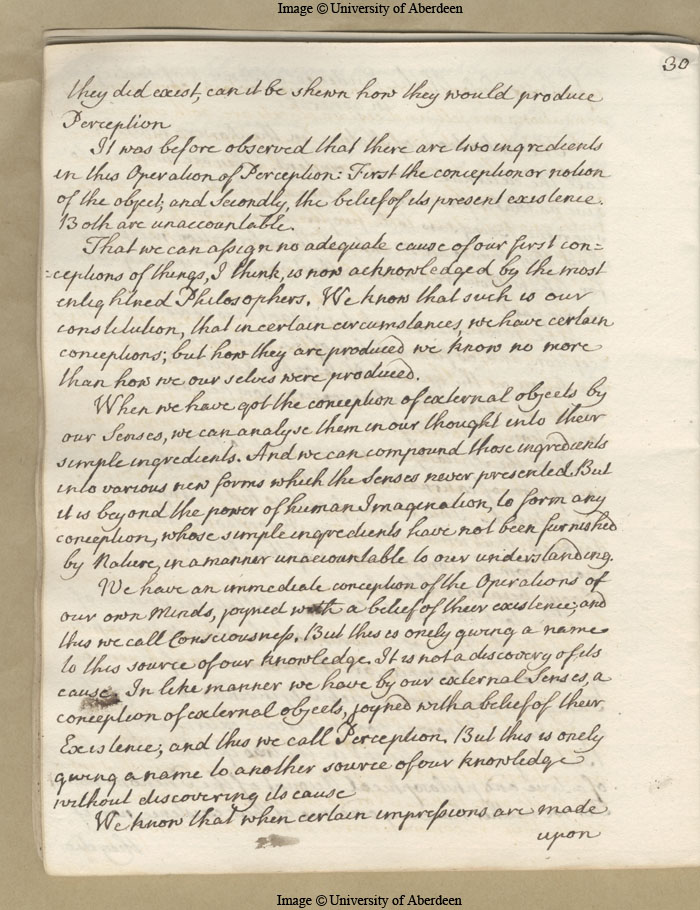 Image © University of Aberdeen
30
they did exist, can it be shewn how they would produce
Perception
It was before observed that there are two ingredients
in this Operation of Perception: First the conception or notion
of the object; and Secondly, the belief of its present existence.
Both are unaccountable.
That we can assign no adequate cause of our first con=
=ceptions of things, I think, is now acknowledged by the most
enlightned Philosophers. We know that such is our
constitution, that in certain circumstances, we have certain
conceptions; but how they are produced we know no more
than how we our selves were produced.
When we have got the conception of external objects by
our Senses, we can analyse them in our thought into their
simple ingredients. And we can compound those ingredients
into various new forms which the Senses never presented. But
it is beyond the power of human Imagination, to form any
conception, whose simple ingredients have not been furnished
by Nature, in a manner unaccountable to our understanding.
We have an immediate conception of the Operations of
our own Minds, joyned with a belief of their existence; and
this we call Consciousness. But this is onely giving a name
to this source of our knowledge. It is not a discovery of its
cause. In like manner we have by our external Senses, a
conception of external objects, joyned with a belief of their
Existence; and this we call Perception. But this is onely
giving a name to another source of our knowledge
without discovering its cause
We know that when certain impressions are made
upon
Image © University of Aberdeen